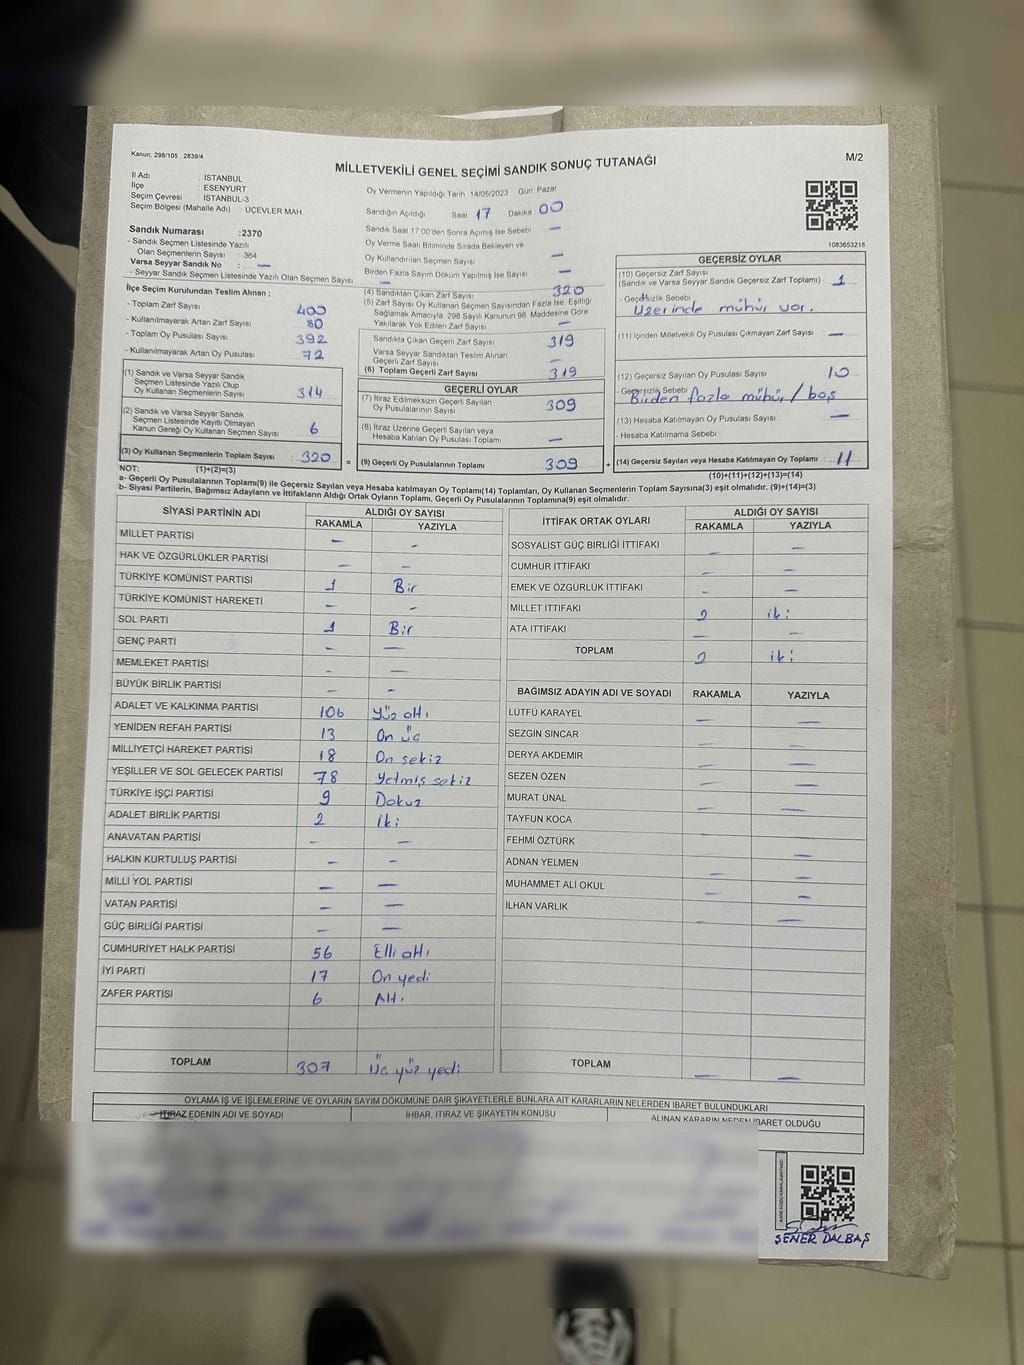 Kanun: 298/105 , 2839/4
MİLLETVEKİLİ GENEL SEÇİMİ SANDIK SONUÇ TUTANAĞI
M/2
İl Adı : İSTANBUL
İlçe : ESENYURT
Seçim Çevresi : İSTANBUL-3
Seçim Bölgesi (Mahalle Adı) : ÜÇEVLER MAH.
Sandık Numarası :2370
- Sandık Seçmen Listesinde Yazılı
Olan Seçmenlerin Sayısı : 364
Varsa Seyyar Sandık No : —
- Seyyar Sandık Seçmen Listesinde Yazılı Olan Seçmen Sayısı : —
Oy Vermenin Yapıldığı Tarih :14/05/2023 Gün: Pazar
Sandığın Açıldığı Saat 17 Dakika 00
Sandık Saat 17:00'den Sonra Açılmış İse Sebebi —
Oy Verme Saati Bitiminde Sırada Bekleyen ve
Oy Kullandırılan Seçmen Sayısı —
Birden Fazla Sayım Döküm Yapılmış İse Sayısı —
1083653218
İlçe Seçim Kurulundan Teslim Alınan :
- Toplam Zarf Sayısı 400
- Kullanılmayarak Artan Zarf Sayısı 80
- Toplam Oy Pusulası Sayısı 392
- Kullanılmayarak Artan Oy Pusulası 72
(1) Sandık ve Varsa Seyyar Sandık
Seçmen Listesinde Yazılı Olup
Oy Kullanan Seçmenlerin Sayısı 314
(2) Sandık ve Varsa Seyyar Sandık
Seçmen Listesinde Kayıtlı Olmayan
Kanun Gereği Oy Kullanan Seçmen Sayısı 6
(3) Oy Kullanan Seçmenlerin Toplam Sayısı : 320
(4) Sandıktan Çıkan Zarf Sayısı 320
(5) Zarf Sayısı Oy Kullanan Seçmen Sayısından Fazla İse, Eşitliği
Sağlamak Amacıyla, 298 Sayılı Kanunun 98. Maddesine Göre
Yakılarak Yok Edilen Zarf Sayısı —
Sandıkta Çıkan Geçerli Zarf Sayısı 319
Varsa Seyyar Sandıktan Teslim Alınan
Geçerli Zarf Sayısı —
(6) Toplam Geçerli Zarf Sayısı 319
GEÇERLİ OYLAR
(7) İtiraz Edilmeksizin Geçerli Sayılan
Oy Pusulalarının Sayısı 309
(8) İtiraz Üzerine Geçerli Sayılan veya
Hesaba Katılan Oy Pusulası Toplamı —
= (9) Geçerli Oy Pusulalarının Toplamı 309
GEÇERSİZ OYLAR
(10) Geçersiz Zarf Sayısı
(Sandık ve Varsa Seyyar Sandık Geçersiz Zarf Toplamı) : 1
- Geçersizlik Sebebi
Üzerinde mühür var.
(11) İçinden Milletvekili Oy Pusulası Çıkmayan Zarf Sayısı : —
(12) Geçersiz Sayılan Oy Pusulası Sayısı 10
- Geçersizlik Sebebi
Birden fazla mühür / boş
(13) Hesaba Katılmayan Oy Pusulası Sayısı : —
- Hesaba Katılmama Sebebi
+ (14) Geçersiz Sayılan veya Hesaba Katılmayan Oy Toplamı : 11
NOT: (1)+(2)=(3)
(10)+(11)+(12)+(13)=(14)
a- Geçerli Oy Pusulalarının Toplamı(9) ile Geçersiz Sayılan veya Hesaba katılmayan Oy Toplamı(14) Toplamları, Oy Kullanan Seçmenlerin Toplam Sayısına(3) eşit olmalıdır. (9)+(14)=(3)
b- Siyasi Partilerin, Bağımsız Adayların ve İttifakların Aldığı Ortak Oyların Toplamı, Geçerli Oy Pusulalarının Toplamına(9) eşit olmalıdır.
SİYASİ PARTİNİN ADI ALDIĞI OY SAYISI
RAKAMLA YAZIYLA
MİLLET PARTİSİ — —
HAK VE ÖZGÜRLÜKLER PARTİSİ — —
TÜRKİYE KOMÜNİST PARTİSİ 1 Bir
TÜRKİYE KOMÜNİST HAREKETİ — —
SOL PARTİ 1 Bir
GENÇ PARTİ — —
MEMLEKET PARTİSİ — —
BÜYÜK BİRLİK PARTİSİ — —
ADALET VE KALKINMA PARTİSİ 106 Yüz altı
YENİDEN REFAH PARTİSİ 13 On üç
MİLLİYETÇİ HAREKET PARTİSİ 18 On sekiz
YEŞİLLER VE SOL GELECEK PARTİSİ 78 Yetmiş sekiz
TÜRKİYE İŞÇİ PARTİSİ 9 Dokuz
ADALET BİRLİK PARTİSİ 2 İki
ANAVATAN PARTİSİ — —
HALKIN KURTULUŞ PARTİSİ — —
MİLLİ YOL PARTİSİ — —
VATAN PARTİSİ — —
GÜÇ BİRLİĞİ PARTİSİ — —
CUMHURİYET HALK PARTİSİ 56 Elli altı
İYİ PARTİ 17 On yedi
ZAFER PARTİSİ 6 Altı
TOPLAM 307 Üç yüz yedi
İTTİFAK ORTAK OYLARI ALDIĞI OY SAYISI
RAKAMLA YAZIYLA
SOSYALİST GÜÇ BİRLİĞİ İTTİFAKI — —
CUMHUR İTTİFAKI — —
EMEK VE ÖZGÜRLÜK İTTİFAKI — —
MİLLET İTTİFAKI 2 iki
ATA İTTİFAKI — —
TOPLAM 2 iki
BAĞIMSIZ ADAYIN ADI VE SOYADI RAKAMLA YAZIYLA
LÜTFÜ KARAYEL — —
SEZGİN SİNCAR — —
DERYA AKDEMİR — —
SEZEN ÖZEN — —
MURAT ÜNAL — —
TAYFUN KOCA
FEHMİ ÖZTÜRK —
ADNAN YELMEN — —
MUHAMMET ALİ OKUL — —
İLHAN VARLIK — —
TOPLAM — —
OYLAMA İŞ VE İŞLEMLERİNE VE OYLARIN SAYIM DÖKÜMÜNE DAİR ŞİKAYETLERLE BUNLARA AİT KARARLARIN NELERDEN İBARET BULUNDUKLARI
İTİRAZ EDENİN ADI VE SOYADI İHBAR, İTİRAZ VE ŞİKAYETİN KONUSU ALINAN KARARIN NEDEN İBARET OLDUĞU
ŞENER DALBAŞ